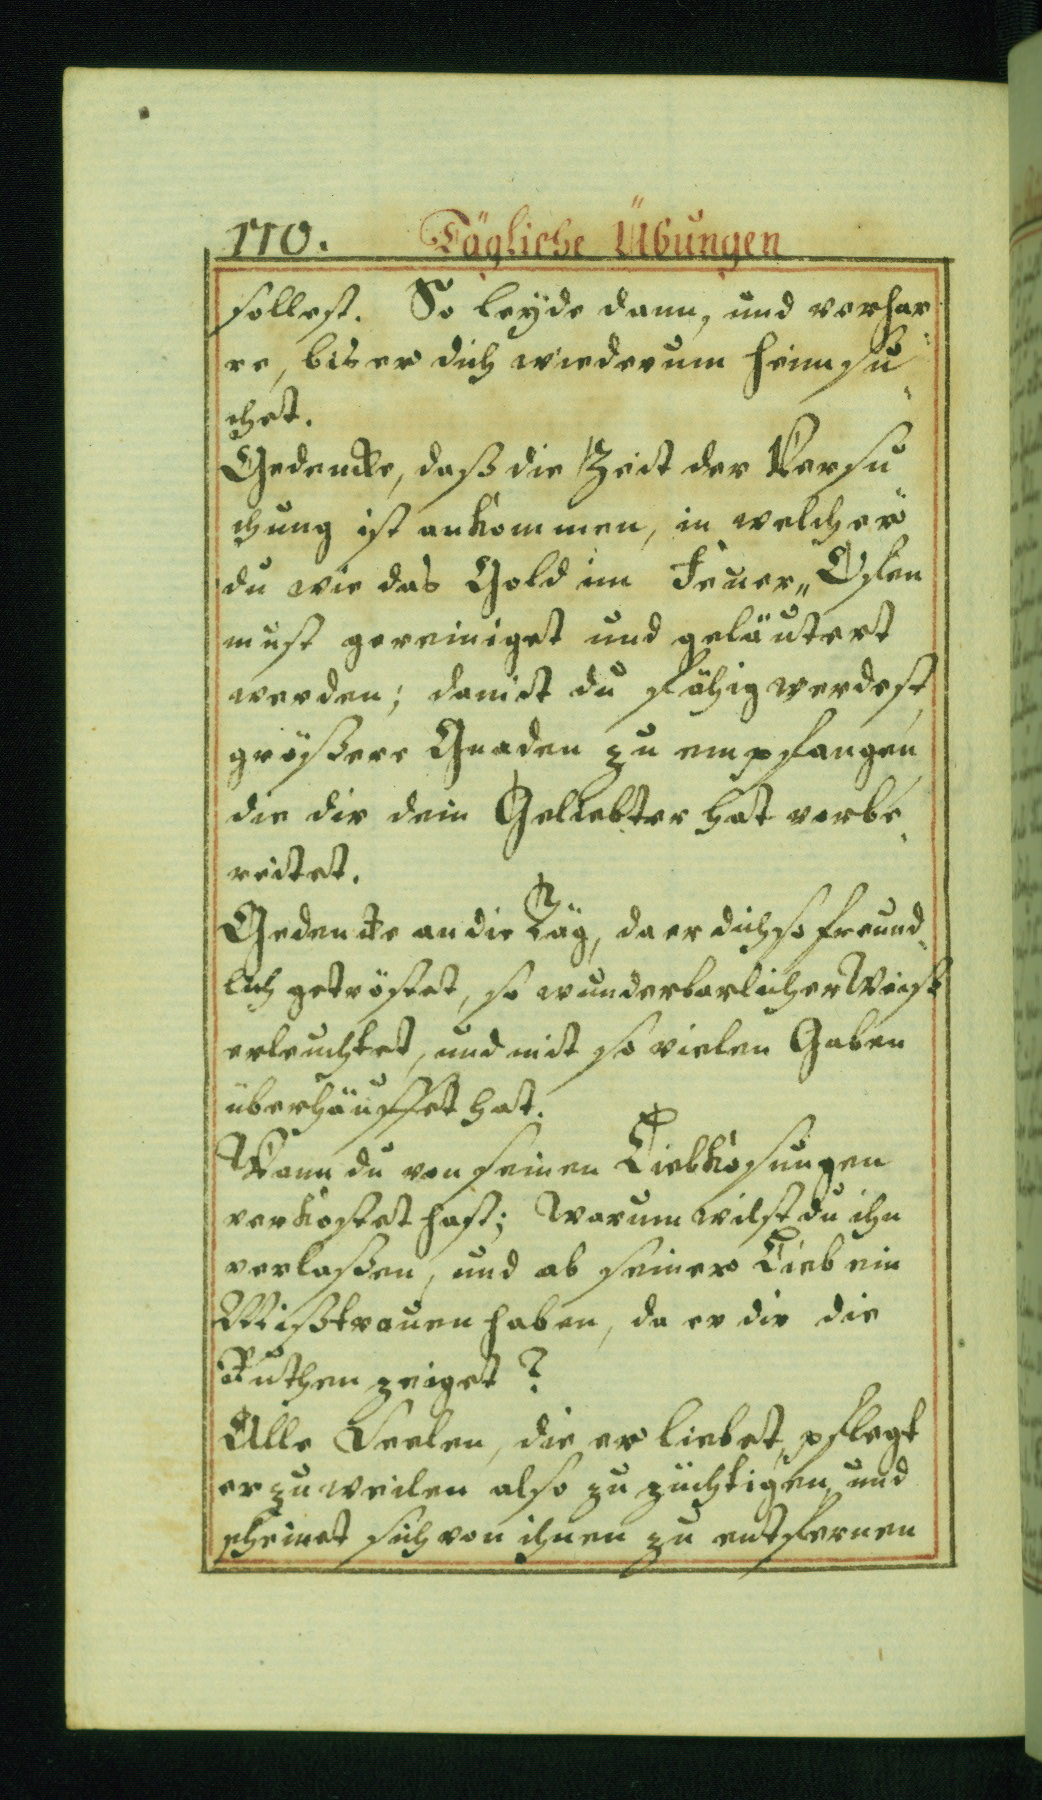 110. Tägliche Übungen
sollest. So leyde dann, und verhar„
re, bis er dich wiederum heimsu„
chet.
Gedencke, daß die Zeit der Versu„
chung ist ankommen, in welcher
du wie das Gold im Feuer„Ofen
must gereiniget und geläutert
werden; damit du fähig werdest,
größere Gnaden zu empfangen,
die dir dein Geliebter hat vorbe„
reitet.
Gedencke an die Täg, da er dich so freund„
lich getröstet, so wunderbarlicher Weise
erleuchtet, und mit so vielen Gaben
überhäuffet hat.
Wann du von seinen Liebkosungen
verkostet hast; warum wilst du ihn
verlaßen, und ab seiner Lieb ein
Mißtrauen haben, da er dir die
Ruthen zeiget?
Alle Seelen, die er liebet, pflegt
er zuweilen also zu züchtigen, und
scheinet sich von ihnen zu entfernen